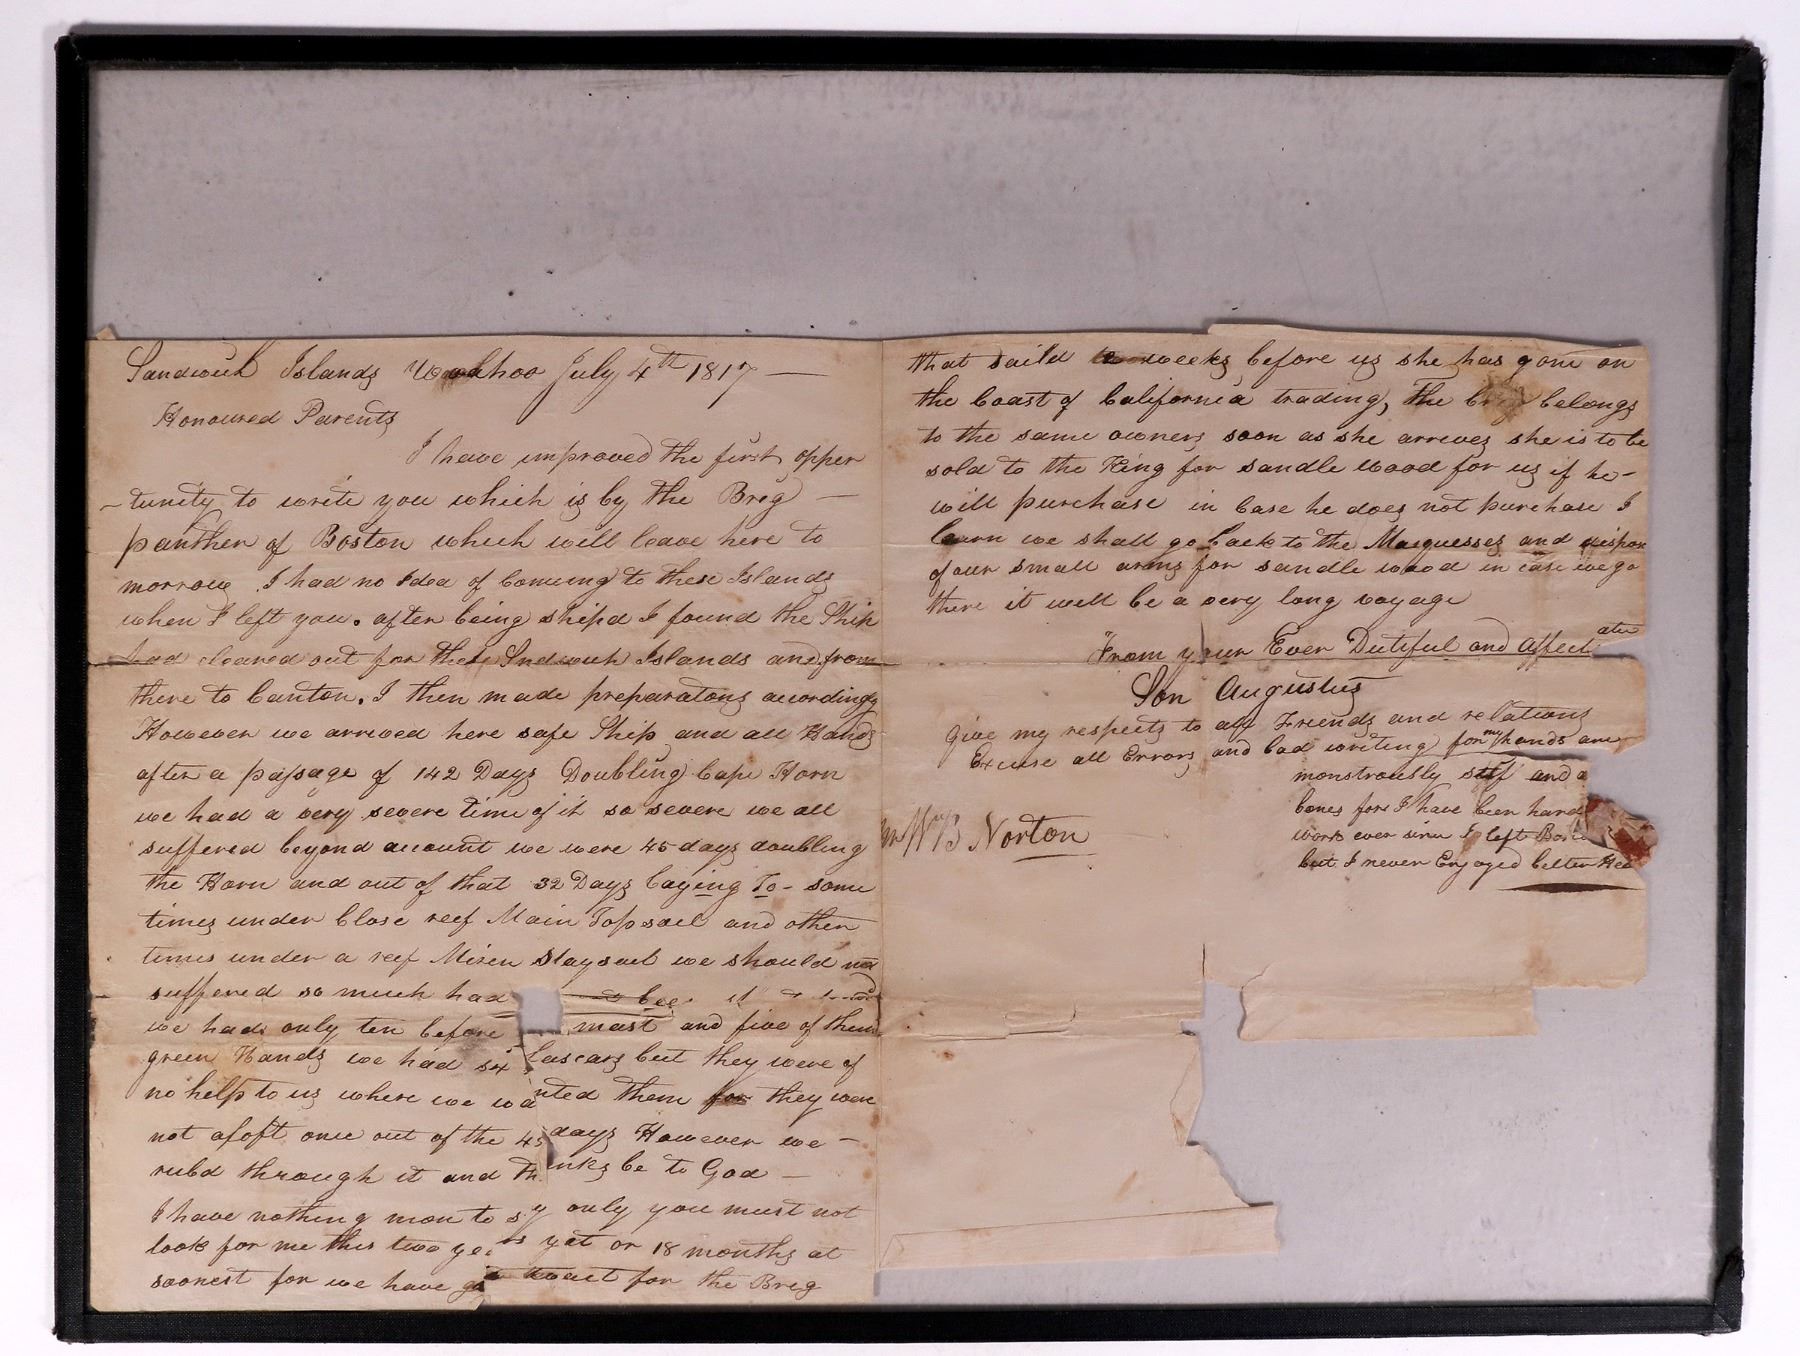 Sandwich Islands Woahoo July 4th 1817 —
Honoured Parents
I have improved the first opper
-tunity to write you which is by the Breg —
panther of Boston which will leave here to
morrow I had no Idea of Comeing to these Islands
when I left you. after being shipd I found the Ship
had cleared out for these Sndwich Islands and from
there to Canton. I then made preparatons accordingly
However we arrived here safe Ship and all Hands
after a passage of 142 Days Doubling Cape Horn
we had a very severe time of it so severe we all
suffered beyond account we were 45 days doubling
the Horn and out of that 32 Days Laying To - some
times under Close reef Main Topsael and other
times under a reef Mizen Staysael we should not
suffered so much had
we had only ten before mast and five of them
green Hands we had six Lascars but they were of
no help to us where we wanted them for they were
not aloft once out of the 45 days However we —
rubd through it and Thanks be to God —
I have nothing more to sy only you must not
look for me this two years yet or 18 months at
soonest for we have to wait for the Breg
that saild weeks before us she has gone on
the Coast of California trading, The breg belongs
to the same owners soon as she arrives she is to be
sold to the King for sandle wood for us if he -
will purchase in Case he does not purchase I
learn we shall go back to the Marquesses and dispose
of our small arms for sandle wood in case we go
there it will be a very long voyage
From your Ever Dutiful and affectionate
Son Augustus
Give my respects to all Friends and relations
Excuse all Errors and bad writing for my hands are
monstrously stif and a
bones fore I have been hard
work ever since I left Bos
but I never Enjoyed better Hea
Mr Wm B Norton